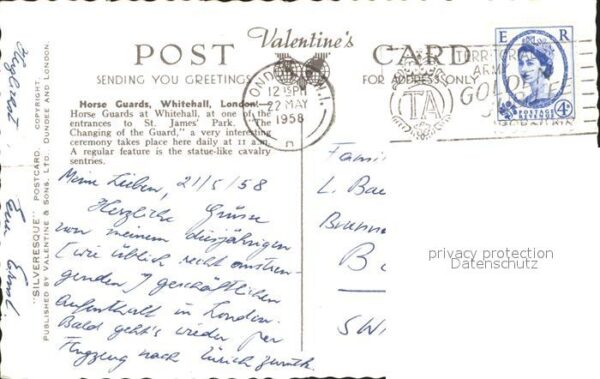 Valentine's
POST CARD
SENDING YOU GREETINGS
FOR ADDRESS ONLY
Horse Guards, Whitehall, London.—
Horse Guards at Whitehall, at one of the
entrances to St. James' Park. "The
Changing of the Guard," a very interesting
ceremony takes place here daily at 11 a.m.
A regular feature is the statue-like cavalry
sentries.
Meine Lieben, 21/5/58
Herzliche Grüsse
von meinem diesjährigen
(wie üblich recht anstren-
genden) geschäftlichen
Aufenthalt in London.
Bald geht's wieder per
Flugzeug nach Zürich zurück.
Euer
"SILVERESQUE" POSTCARD. COPYRIGHT.
PUBLISHED BY VALENTINE & SONS, LTD. DUNDEE AND LONDON.
LONDON
12 15 PM
22 MAY
1958
TERRITOR
ARMY
TA
GOLDEN
E R
4D
POSTAGE
REVENUE
Fami
L. Ba
Brunne
B
SW
privacy protection
Datenschutz